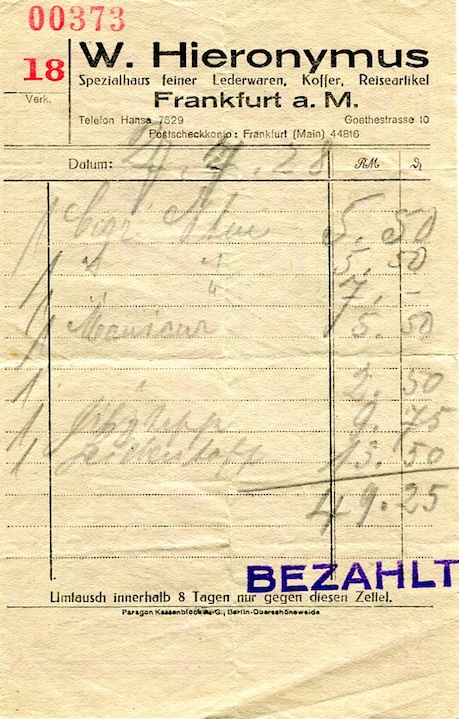 00373
18
Verk.
W. Hieronymus
Spezialhaus feiner Lederwaren, Koffer, Reiseartikel
Frankfurt a. M.
Telefon Hansa 7629 Goethestrasse 10
Postscheckkonto: Frankfurt (Main) 44816
Datum: 7.28 RM
1 5.50
1 " " 5.50
1 " " 7.-
1 5.50
1 2.50
1 9.75
1 13.50
49.25
BEZAHLT
Umtausch innerhalb 8 Tagen nur gegen diesen Zettel.
Paragon Kassenblock A.-G., Berlin-Oberschöneweide